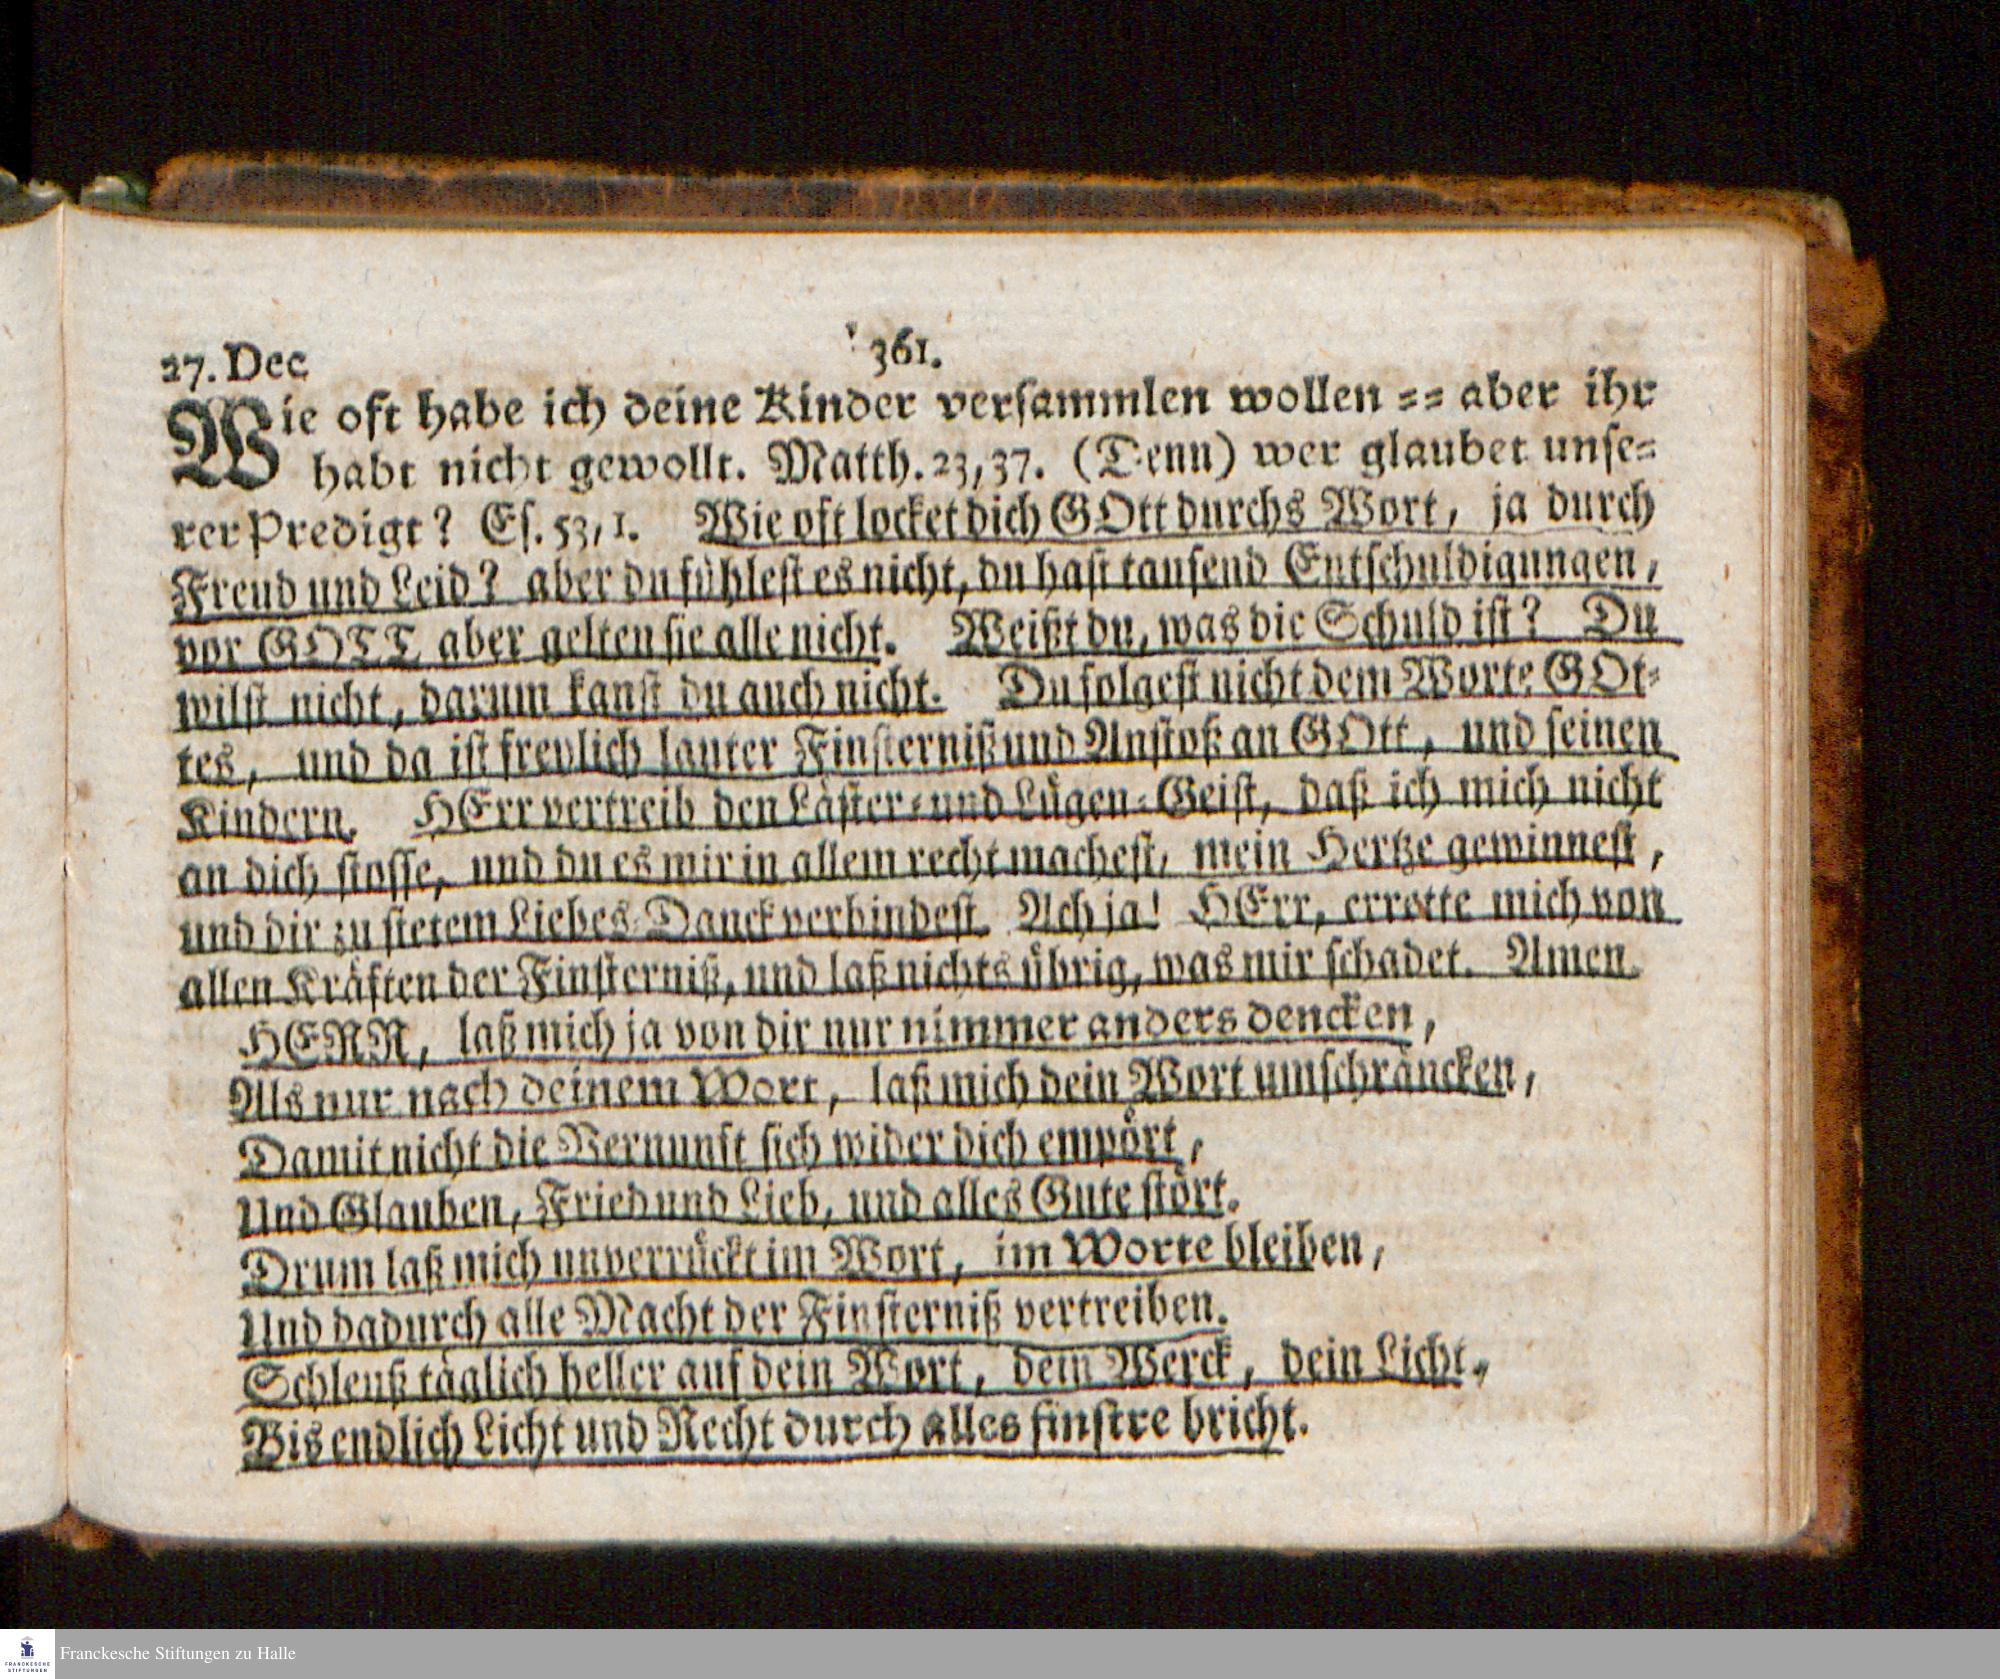 27. Dec 361.
Wie oft habe ich deine Kinder versammlen wollen == aber ihr
habt nicht gewollt. Matth. 23, 37. (Denn) wer glaubet unse=
rer Predigt? Es. 53, 1. Wie oft locket dich GOtt durchs Wort, ja durch
Freud und Leid? aber du fühlest es nicht, du hast tausend Entschuldigungen,
vor GOTT aber gelten sie alle nicht. Weißt du, was die Schuld ist? Du
wilst nicht, darum kanst du auch nicht. Du folgest nicht dem Worte GOt=
tes, und da ist freylich lauter Finsterniß und Anstoß an GOtt, und seinen
Kindern. HErr vertreib den Läster= und Lügen=Geist, daß ich mich nicht
an dich stosse, und du es mir in allem recht machest, mein Hertze gewinnest,
und dir zu stetem Liebes=Danck verbindest. Ach ja! HErr, errette mich von
allen Kräften der Finsterniß, und laß nichts übrig, was mir schadet. Amen.
HERR, laß mich ja von dir nur nimmer anders dencken,
Als nur nach deinem Wort, laß mich dein Wort umschräncken,
Damit nicht die Vernunft sich wider dich empört,
Und Glauben, Fried und Lieb, und alles Gute stört.
Drum laß mich unverrückt im Wort, im Worte bleiben,
Und dadurch alle Macht der Finsterniß vertreiben.
Schleuß täglich heller auf dein Wort, dein Werck, dein Licht,
Bis endlich Licht und Recht durch alles finstre bricht.
FRANCKESCHE
STIFTUNGEN
Franckesche Stiftungen zu Halle